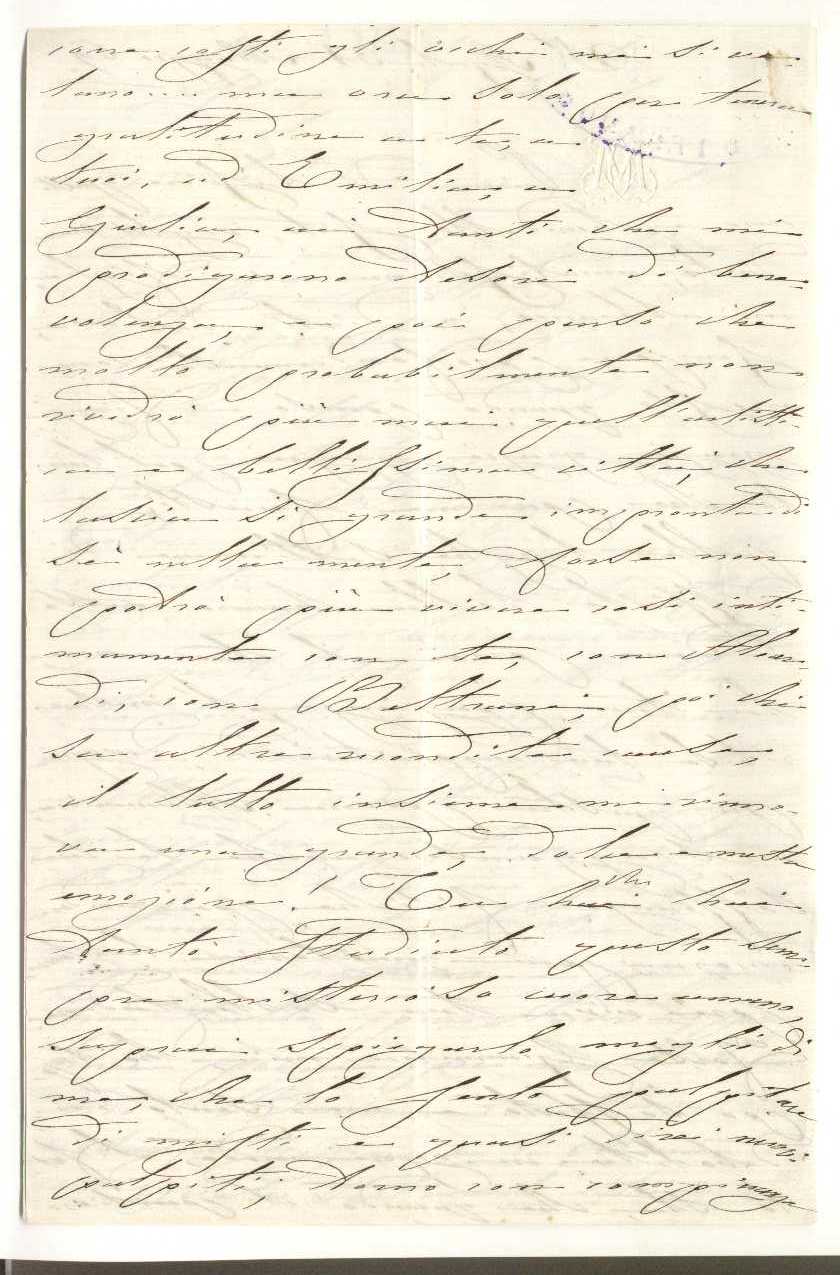 così gli occhi mi si ve-
lano.... ma ora solo per tenera
gratitudine a te, a
tuoi, ad Emilia, a
Giulia, ai tanti che mi
prodigarono tesori di bene-
volenza, e poi penso che
molto probabilmente non
rivedrò più mai quell'artisti-
ca e bellissima città, che
lascia sì grande impronta di
sè nella mente, forse non
potrò più vivere così inti-
mamente con te, con Alear-
di, con Beltrame, poi chi
sa altre recondite cause,
il tutto insieme mi rinno-
va una grande, dolce e mesta
emozióne! Tu che hai
tantó studiato questo sem-
pre misterióso cuore umano,
saprai spiegarlo meglió di
me, che lo sento palpitare
di misti e quasi direi nuovi
palpiti; torno con